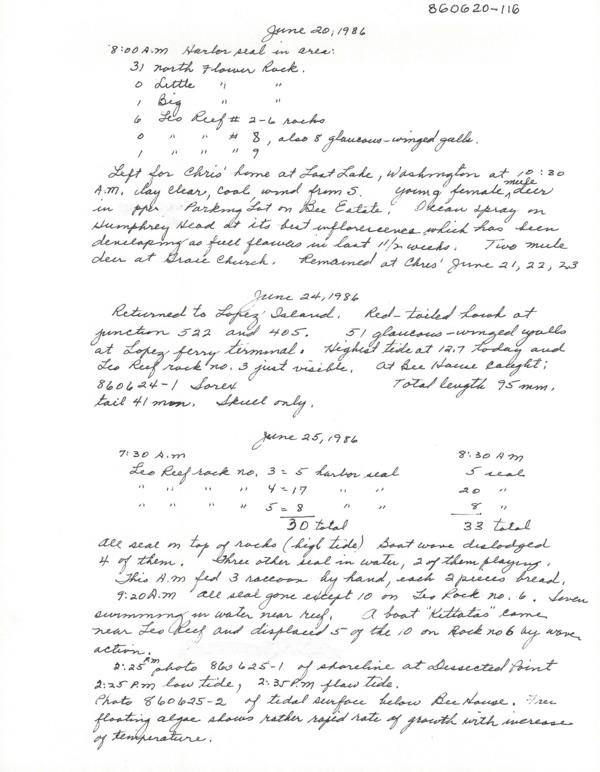 860620-116
June 20, 1986
8:00 A.M Harbor seal in area:
31 north Flower Rock.
0 Little " "
1 Big " "
6 Leo Reef # 2-6 rocks
0 " " # 8, also 8 glaucous-winged gulls.
1 " " " 9
Left for Chris' home at Lost Lake, Washington at 10:30
A.M. Day clear, cool, wind from S. Young female mule deer
in Parking Lot on Bee Estate. Ocean spray on
Humphrey Head at its best inflorescence which has been
developing as fuel flowers in last 1 1/2 weeks. Two mule
deer at Grace Church. Remained at Chris' June 21, 22, 23
June 24, 1986
Returned to Lopez Island. Red-tailed hawk at
junction 522 and 405. 51 glaucous-winged gulls
at Lopez ferry terminal. Highest tide at 12.7 today and
Leo Reef rock no. 3 just visible. At Bee House caught:
860624-1 Sorex Total length 95 mm.
tail 41 mm. Skull only.
June 25, 1986
7:30 A.M 8:30 AM
Leo Reef rock no. 3 = 5 harbor seal 5 seal
" " " " 4 = 17 " " 20 "
" " " " 5 = 8 " " 8 "
30 total 33 total
All seal on top of rocks (high tide) Boat wave dislodged
4 of them. Three other seal in water, 2 of them playing.
This A.M fed 3 raccoon by hand, each 2 pieces bread.
9:20 A.M all seal gone except 10 on Leo Rock no. 6. Seven
swimming in water near reef. A boat "Kittatas" came
near Leo Reef and displaced 5 of the 10 on Rock no 6 by wave
action.
2:25 PM photo 860625-1 of shoreline at Dissected Point
2:25 P.M low tide, 2:35 P.M flaw tide.
Photo 860625-2 of tidal surface below Bee House. Free
floating algae shows rather rapid rate of growth with increase
of temperature.